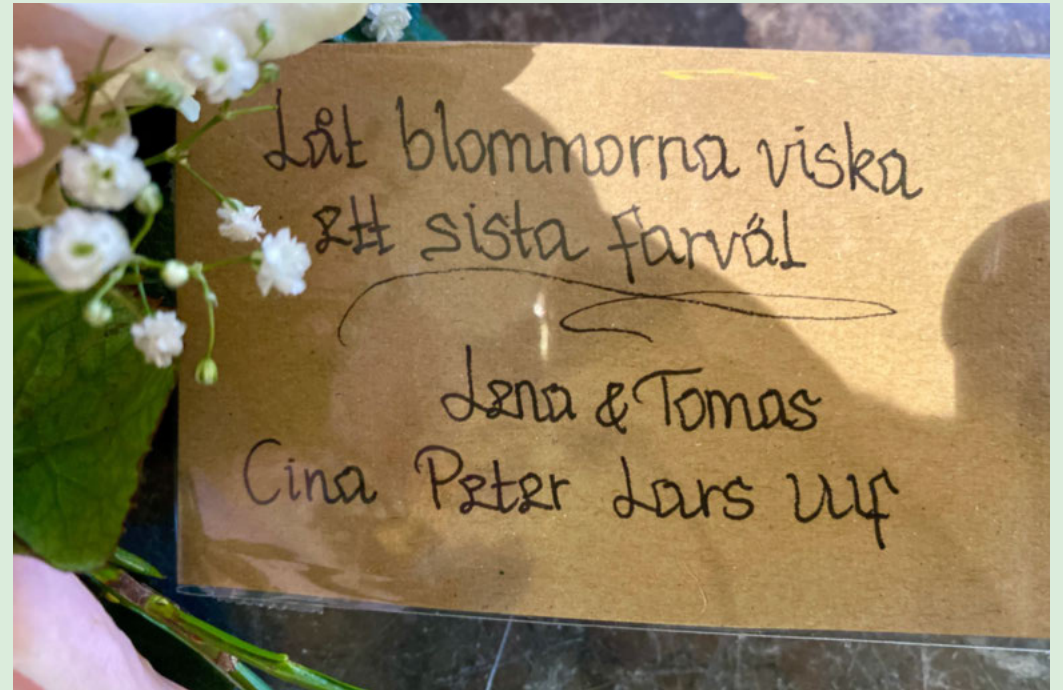 Låt blommorna viska
ett sista farväl
Lena & Tomas
Cina Peter Lars Ulf